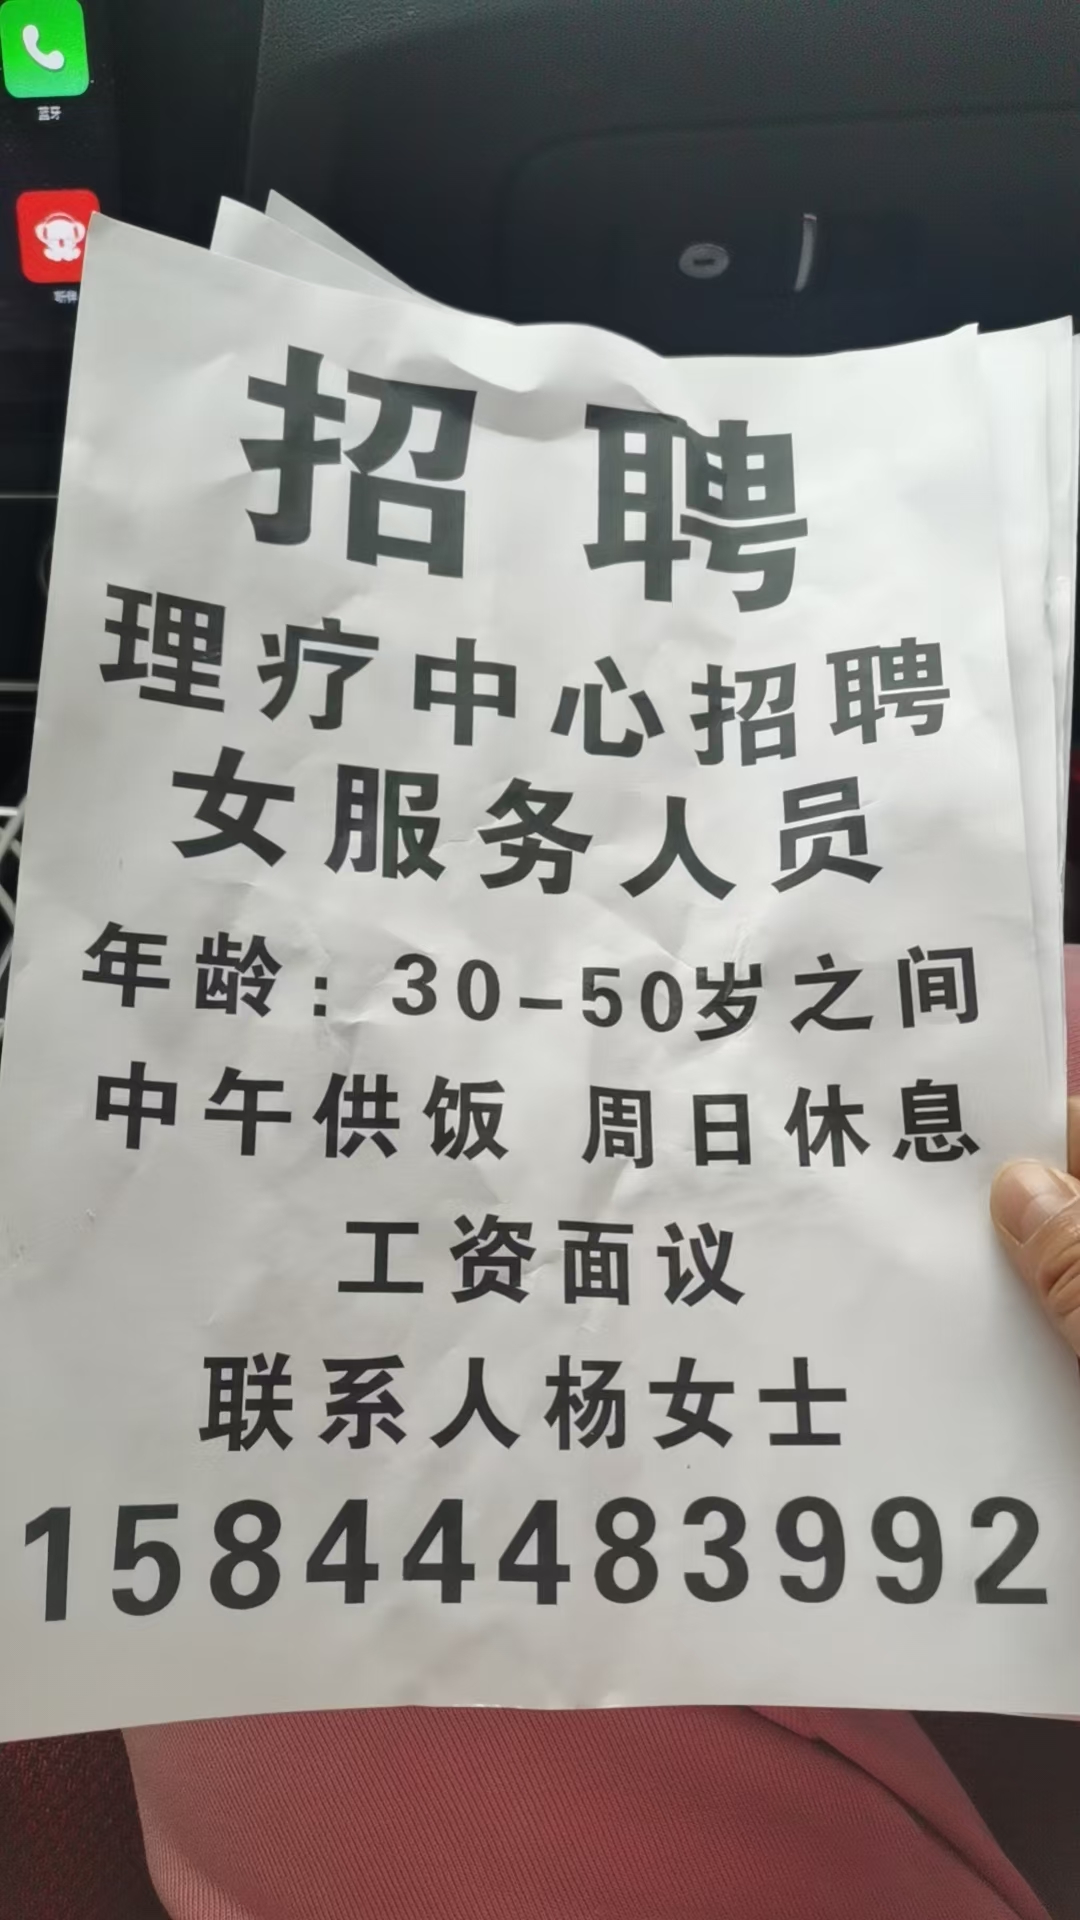 蓝牙
招聘
理疗中心招聘
女服务人员
年龄：30-50岁之间
中午供饭 周日休息
工资面议
联系人杨女士
15844483992